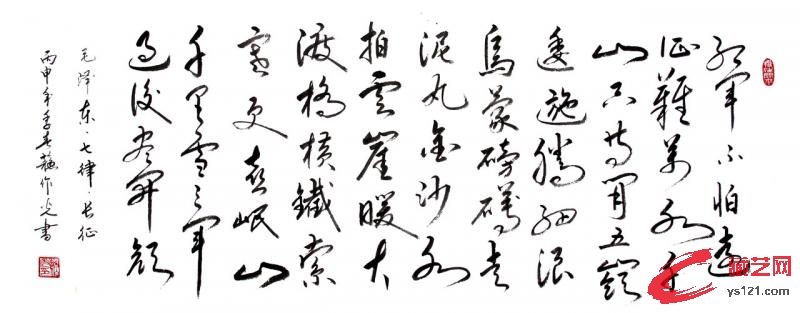 红军不怕远
征難萬水千
山只等闲五嶺
逶迤腾細浪
烏蒙磅礴走
泥丸金沙水
拍雲崖暖大
渡橋橫鐵索
寒更喜岷山
千里雪三军
过後尽开颜
毛泽东·七律·长征
丙申年季春蘇作光書
藏艺网
ys121.com